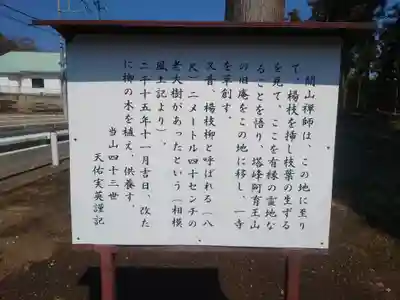 開山禅師は、この地に至り
て、楊枝を挿し枝葉の生ずる
を見て、ここを有縁の霊地な
ることを悟り、塔峰阿育王山
の旧庵をこの地に移し、一寺
を草創す。
又昔、楊枝柳と呼ばれる(八
尺)二メートル四十センチの
老大樹があったという(相模
風土記より)。
二千十五年十一月吉日、改た
に柳の木を植え、供養す。
当山四十三世
天佑実英謹記